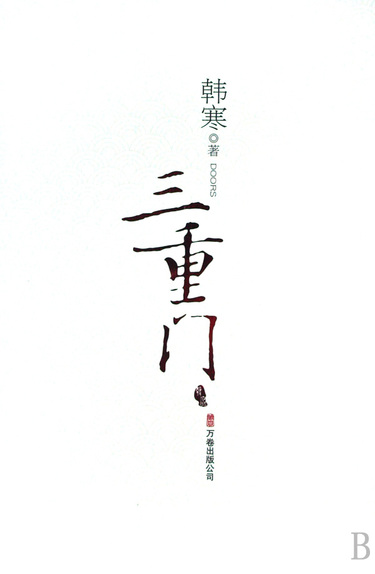 韩寒◎著
DOORS
三重门
万卷出版公司
B